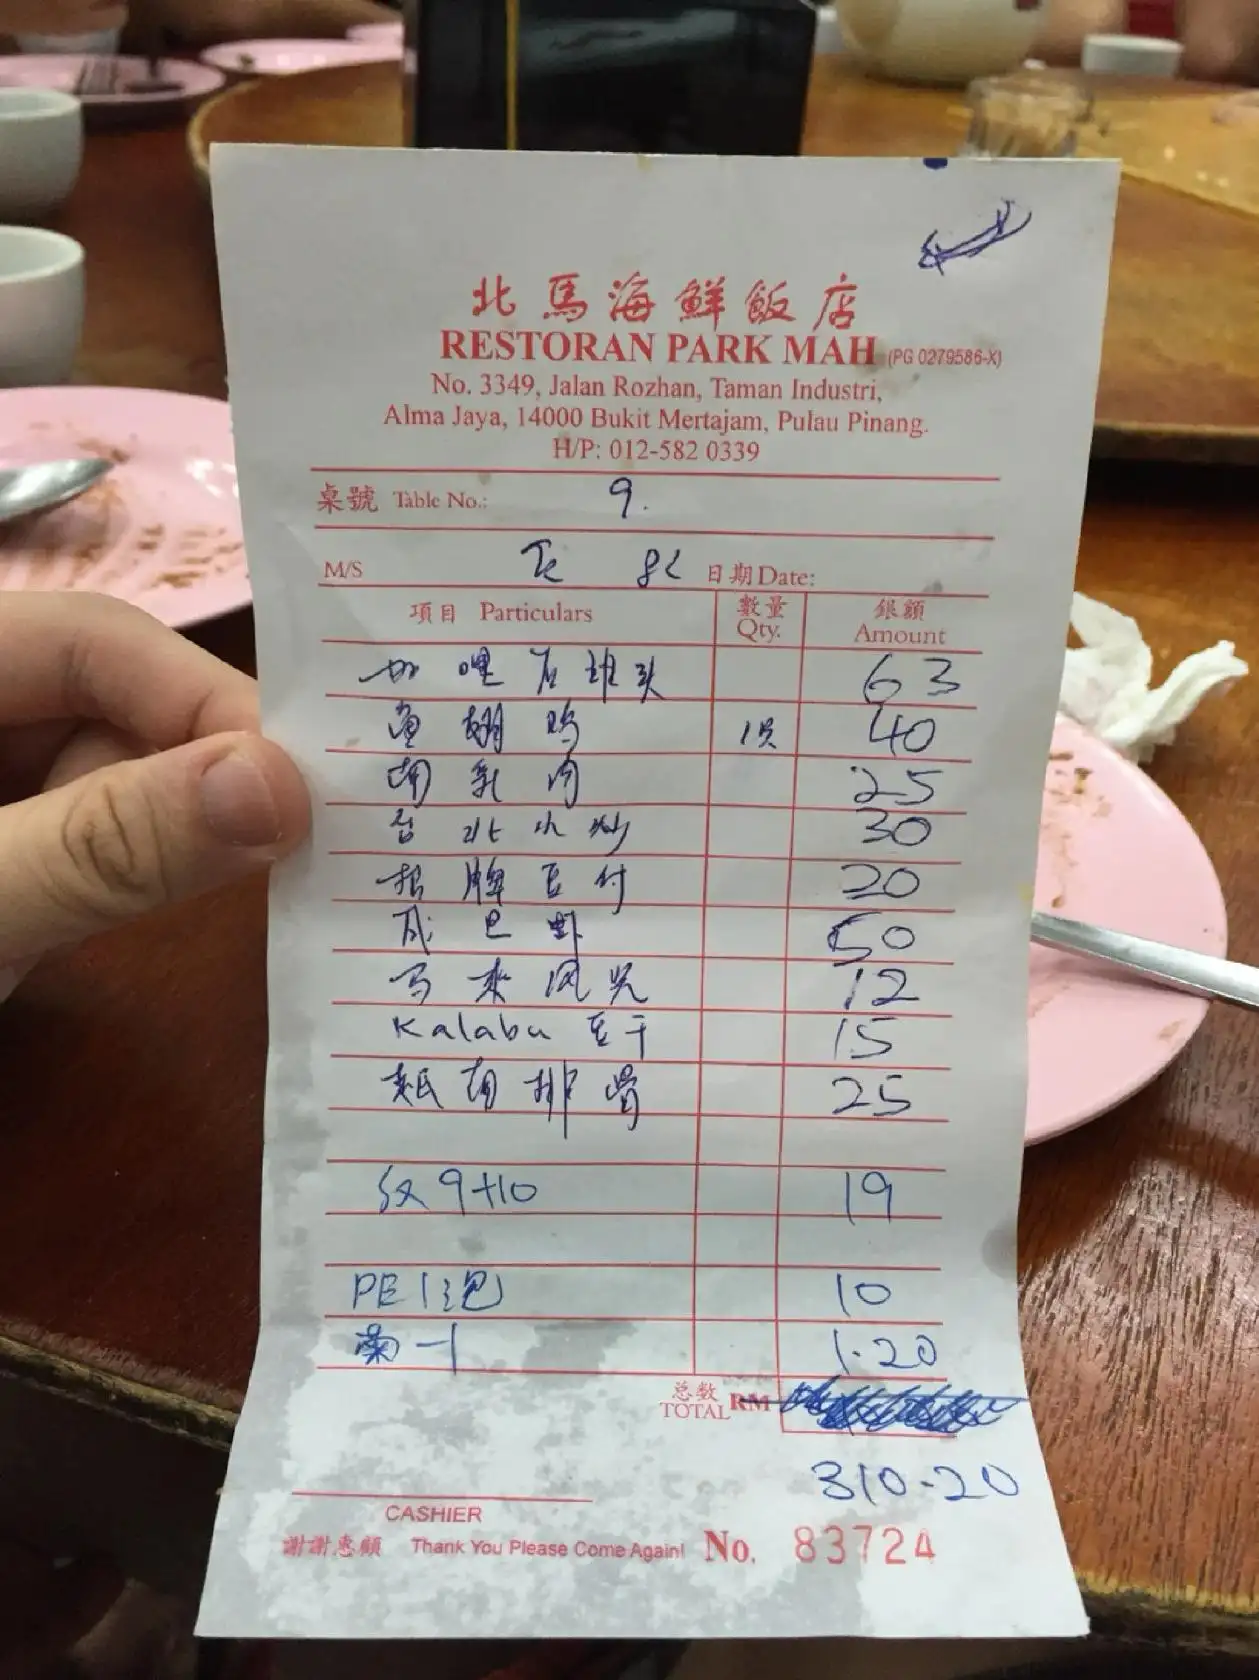 北馬海鮮飯店
RESTORAN PARK MAH (PG 0279586-X)
No. 3349, Jalan Rozhan, Taman Industri,
Alma Jaya, 14000 Bukit Mertajam, Pulau Pinang.
H/P: 012-582 0339
桌號 Table No.: 9.
M/S 日期 Date:
項目 Particulars 數量 Qty. 銀額 Amount
加哩 63
鱼翅 40
南乳肉 25
台北小炒 30
招牌豆付 20
巴 50
马来风光 12
Kalabu 豆干 15
排骨 25
9+10 19
PE 1 泡 10
菊一 1.20
总数 TOTAL RM
310.20
CASHIER
謝謝惠顧 Thank You Please Come Again! No. 83724